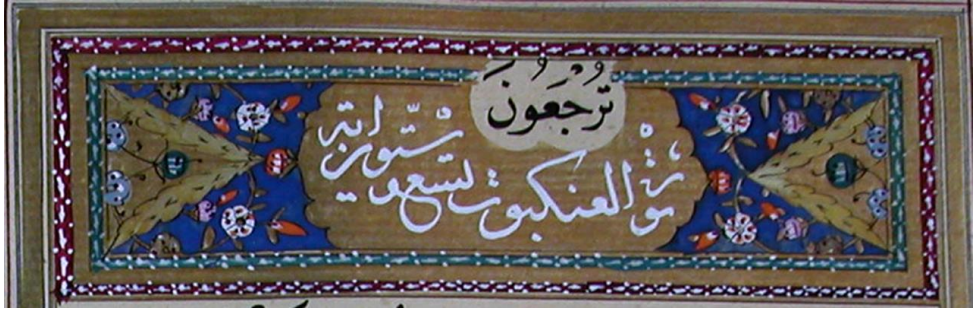 تُرْجَعُونَ
سورة العنكبوت تسع و ستون اية